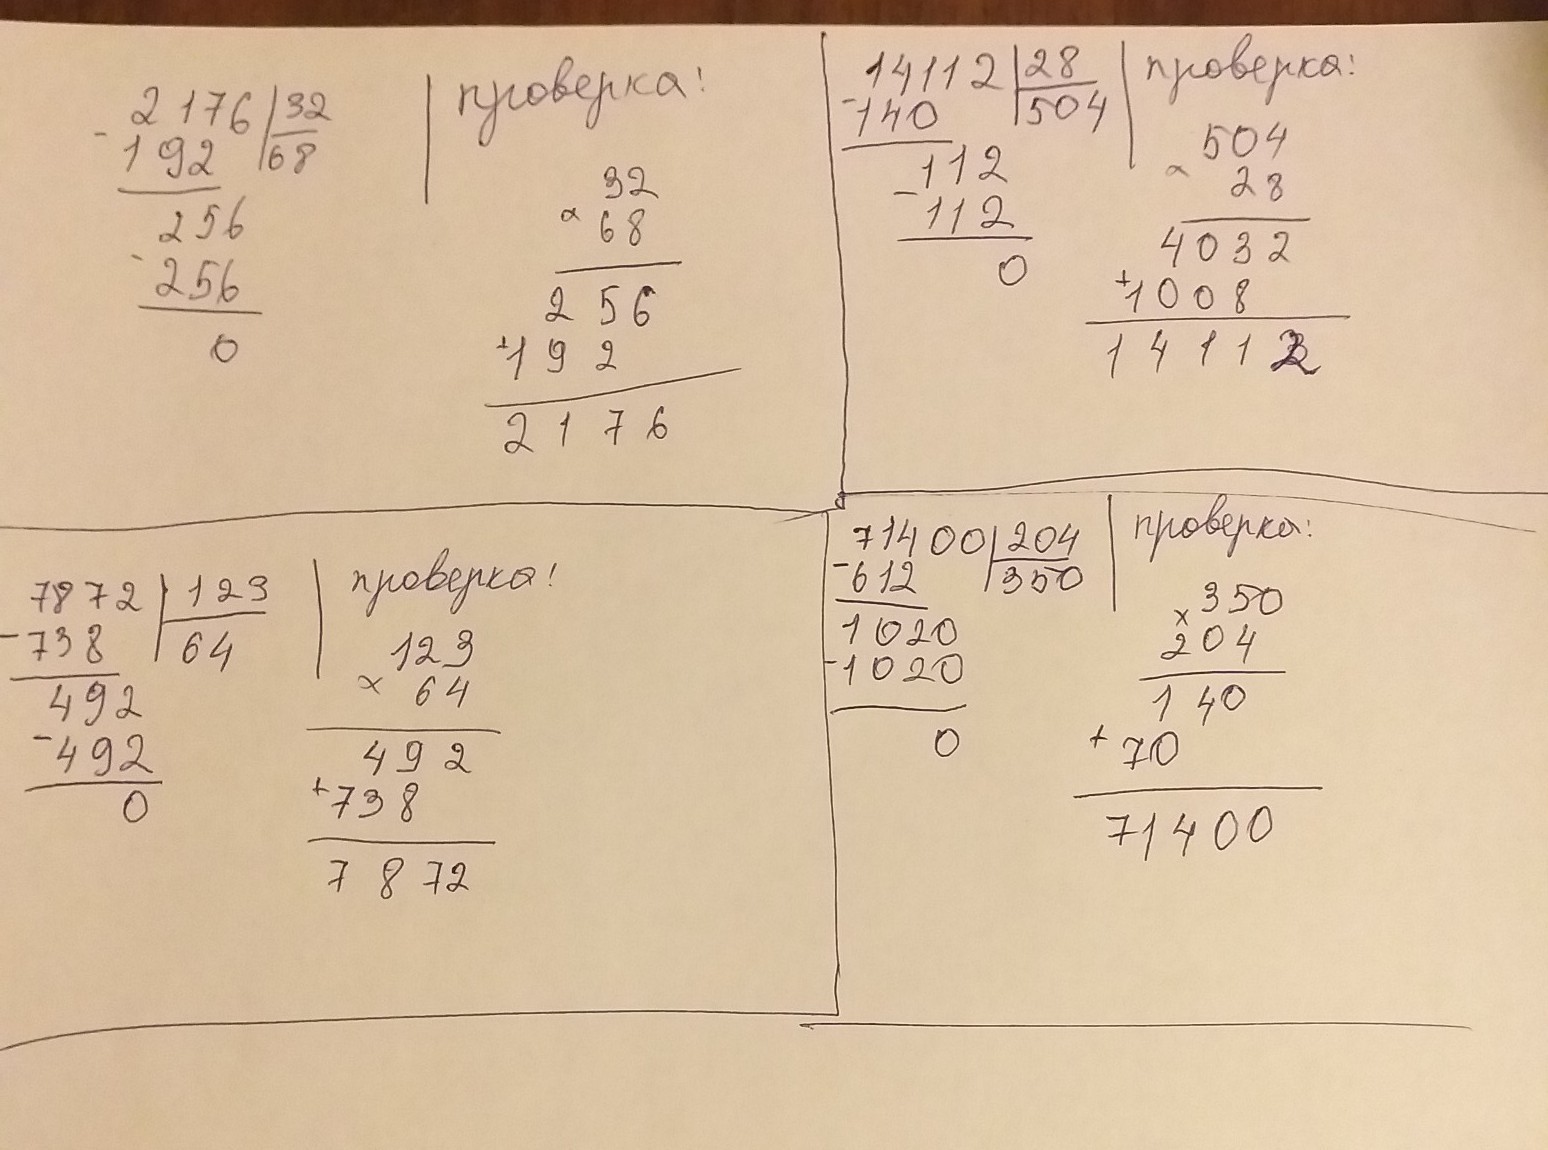 2176 | 32
- 192 | 68
256
- 256
0
проверка!
32
× 68
256
+ 192
2176
14112 | 28
- 140 | 504
112
- 112
0
проверка:
504
× 28
4032
+ 1008
14112
7872 | 123
- 738 | 64
492
- 492
0
проверка!
123
× 64
492
+ 738
7872
71400 | 204
- 612 | 350
1020
- 1020
0
проверка:
× 350
204
140
+ 70
71400